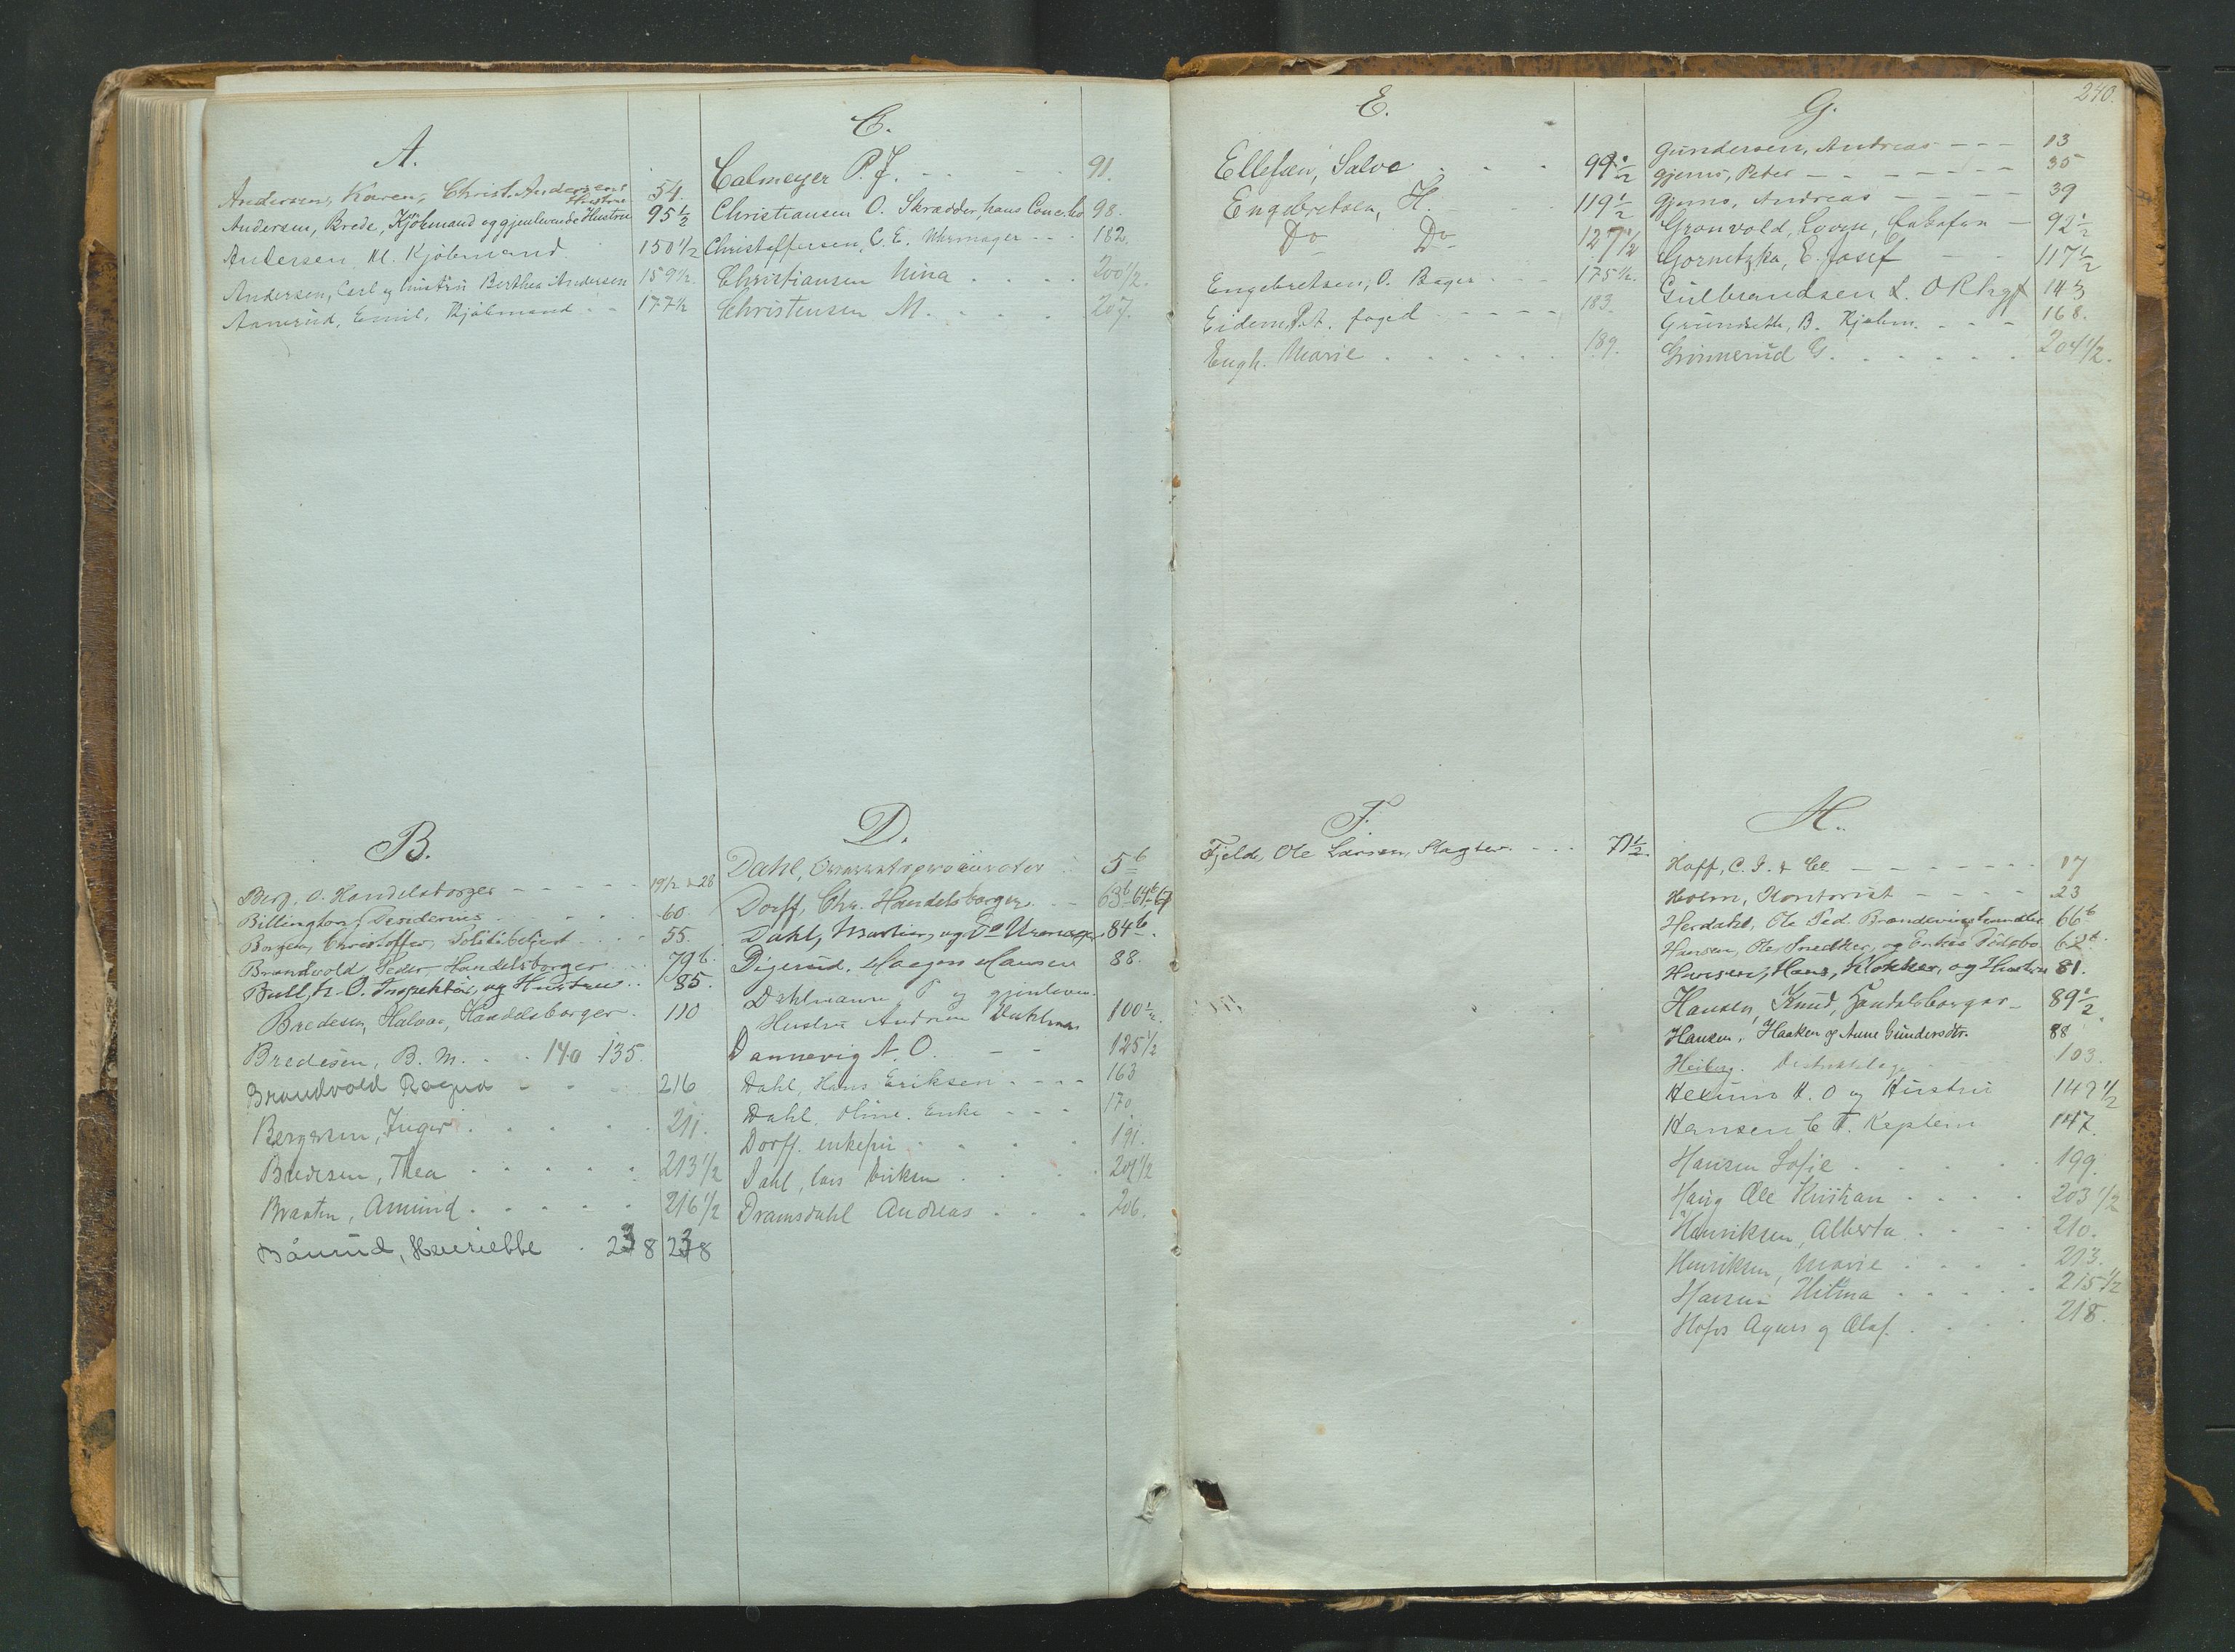 A.
Andersen, Karen, Christ. Andersens
Hustru 54.
Andersen, Brede, Kjöbmand og gjenlevende Hustru 95 1/2
Andersen M. Kjöbmand. 150 1/2
Andersen, Carl og hustru Berthea Andersen 159 1/2.
Aamerud, Emil. Kjöbmand 177 1/2
B.
Berg, O. Handelsborger 19 1/2 28
Billington, 60.
Borgen, Christoffer, Politibetjent 55.
Brandvold, Peder, Handelsborger 79b.
Bull, N. O. Inspektör, og Hustru 85.
Bredesen, Halvor, Handelsborger. 110
Bredesen, B. M. 140 135.
Brandvold Ragna 216
Bergersen, Inger 211.
Bredesen, Thea 213 1/2
Braaten, Amund 216 1/2
Bånrud, Henriette 238 238
C.
Calmeyer P. J. 91.
Christiansen O. Skrædder, hans Conc.bo 98.
Christoffersen, C. E. Uhrmager 182.
Christiansen Nina 200 1/2.
Christensen M. 207.
D.
Dahl, Overretsprocurator 5b
Dorff, Chr. Handelsborger 63b 64b 69
Dahl, Martin, og Do Uremager 84b.
Digerud, Mogens Hansen 88.
Dahlmann P. og gjenleven.
Hustru Andrea Dahlman 100 1/2.
Dannevig N. O. 125 1/2
Dahl, Hans Eriksen 163
Dahl, Oline. Enke 170
Dorff. enkefru 191.
Dahl, Lars Eriksen 201 1/2
Dramsdahl Andreas 206.
240.
E.
Ellefsen, Salve 99 1/2
Engebretsen, H. 119 1/2
Do Do 127 1/2
Engebretsen, O. Bager 175 1/2.
Eidem P. A. foged 183.
Engh. Marie 189.
F.
Fjeld, Ole Larsen, Slagter. 71 1/2.
G.
Gundersen, Andreas 13
Gjems, Peter 35
Gjems, Andreas 39
Grønvold, 92 1/2
Gornetzka, E. Josef 117 1/2
Gulbrandsen L. 143
Grundseth, B. Kjøbm. 168.
Grinnerud G. 204 1/2.
H.
Hoff, C. J. & Co 17
Holm, Kontorist 23
Herdahl, Ole Ped. Brændevinshandler 66b
Hansen, Ole, Snedker, og Enkes Dødsbo 62b.
Hansen, Hans, Klokker, og Hustru 81.
Hansen, Knud, Handelsborger 89 1/2.
Hansen, Haaken og Anne Gundersdtr. 88
Heiberg. Distriktslæge 103.
Helium H. O og Hustru 142 1/2
Hansen C T. Kaptein 147.
Hansen Sofie 199.
Haug Ole Kristian 203 1/2
Henriksen, Alberta 210.
Henriksen, Marie 213.
Hansen Hilma 215 1/2
Hofos Agnes og Olaf. 218.